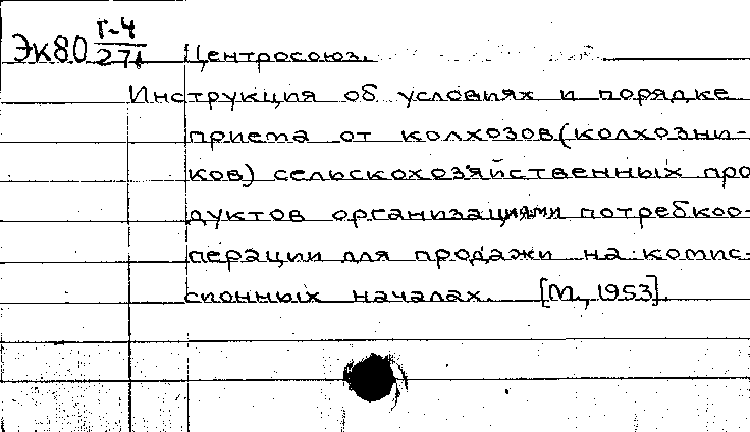 Эк80 Г-4/271 Центросоюз.
Инструкция об условиях и порядке
приема от колхозов (колхозни-
ков) сельскохозяйственных про
дуктов организациями потребкоо-
перации для продажи на комис-
сионных началах. [М., 1953].